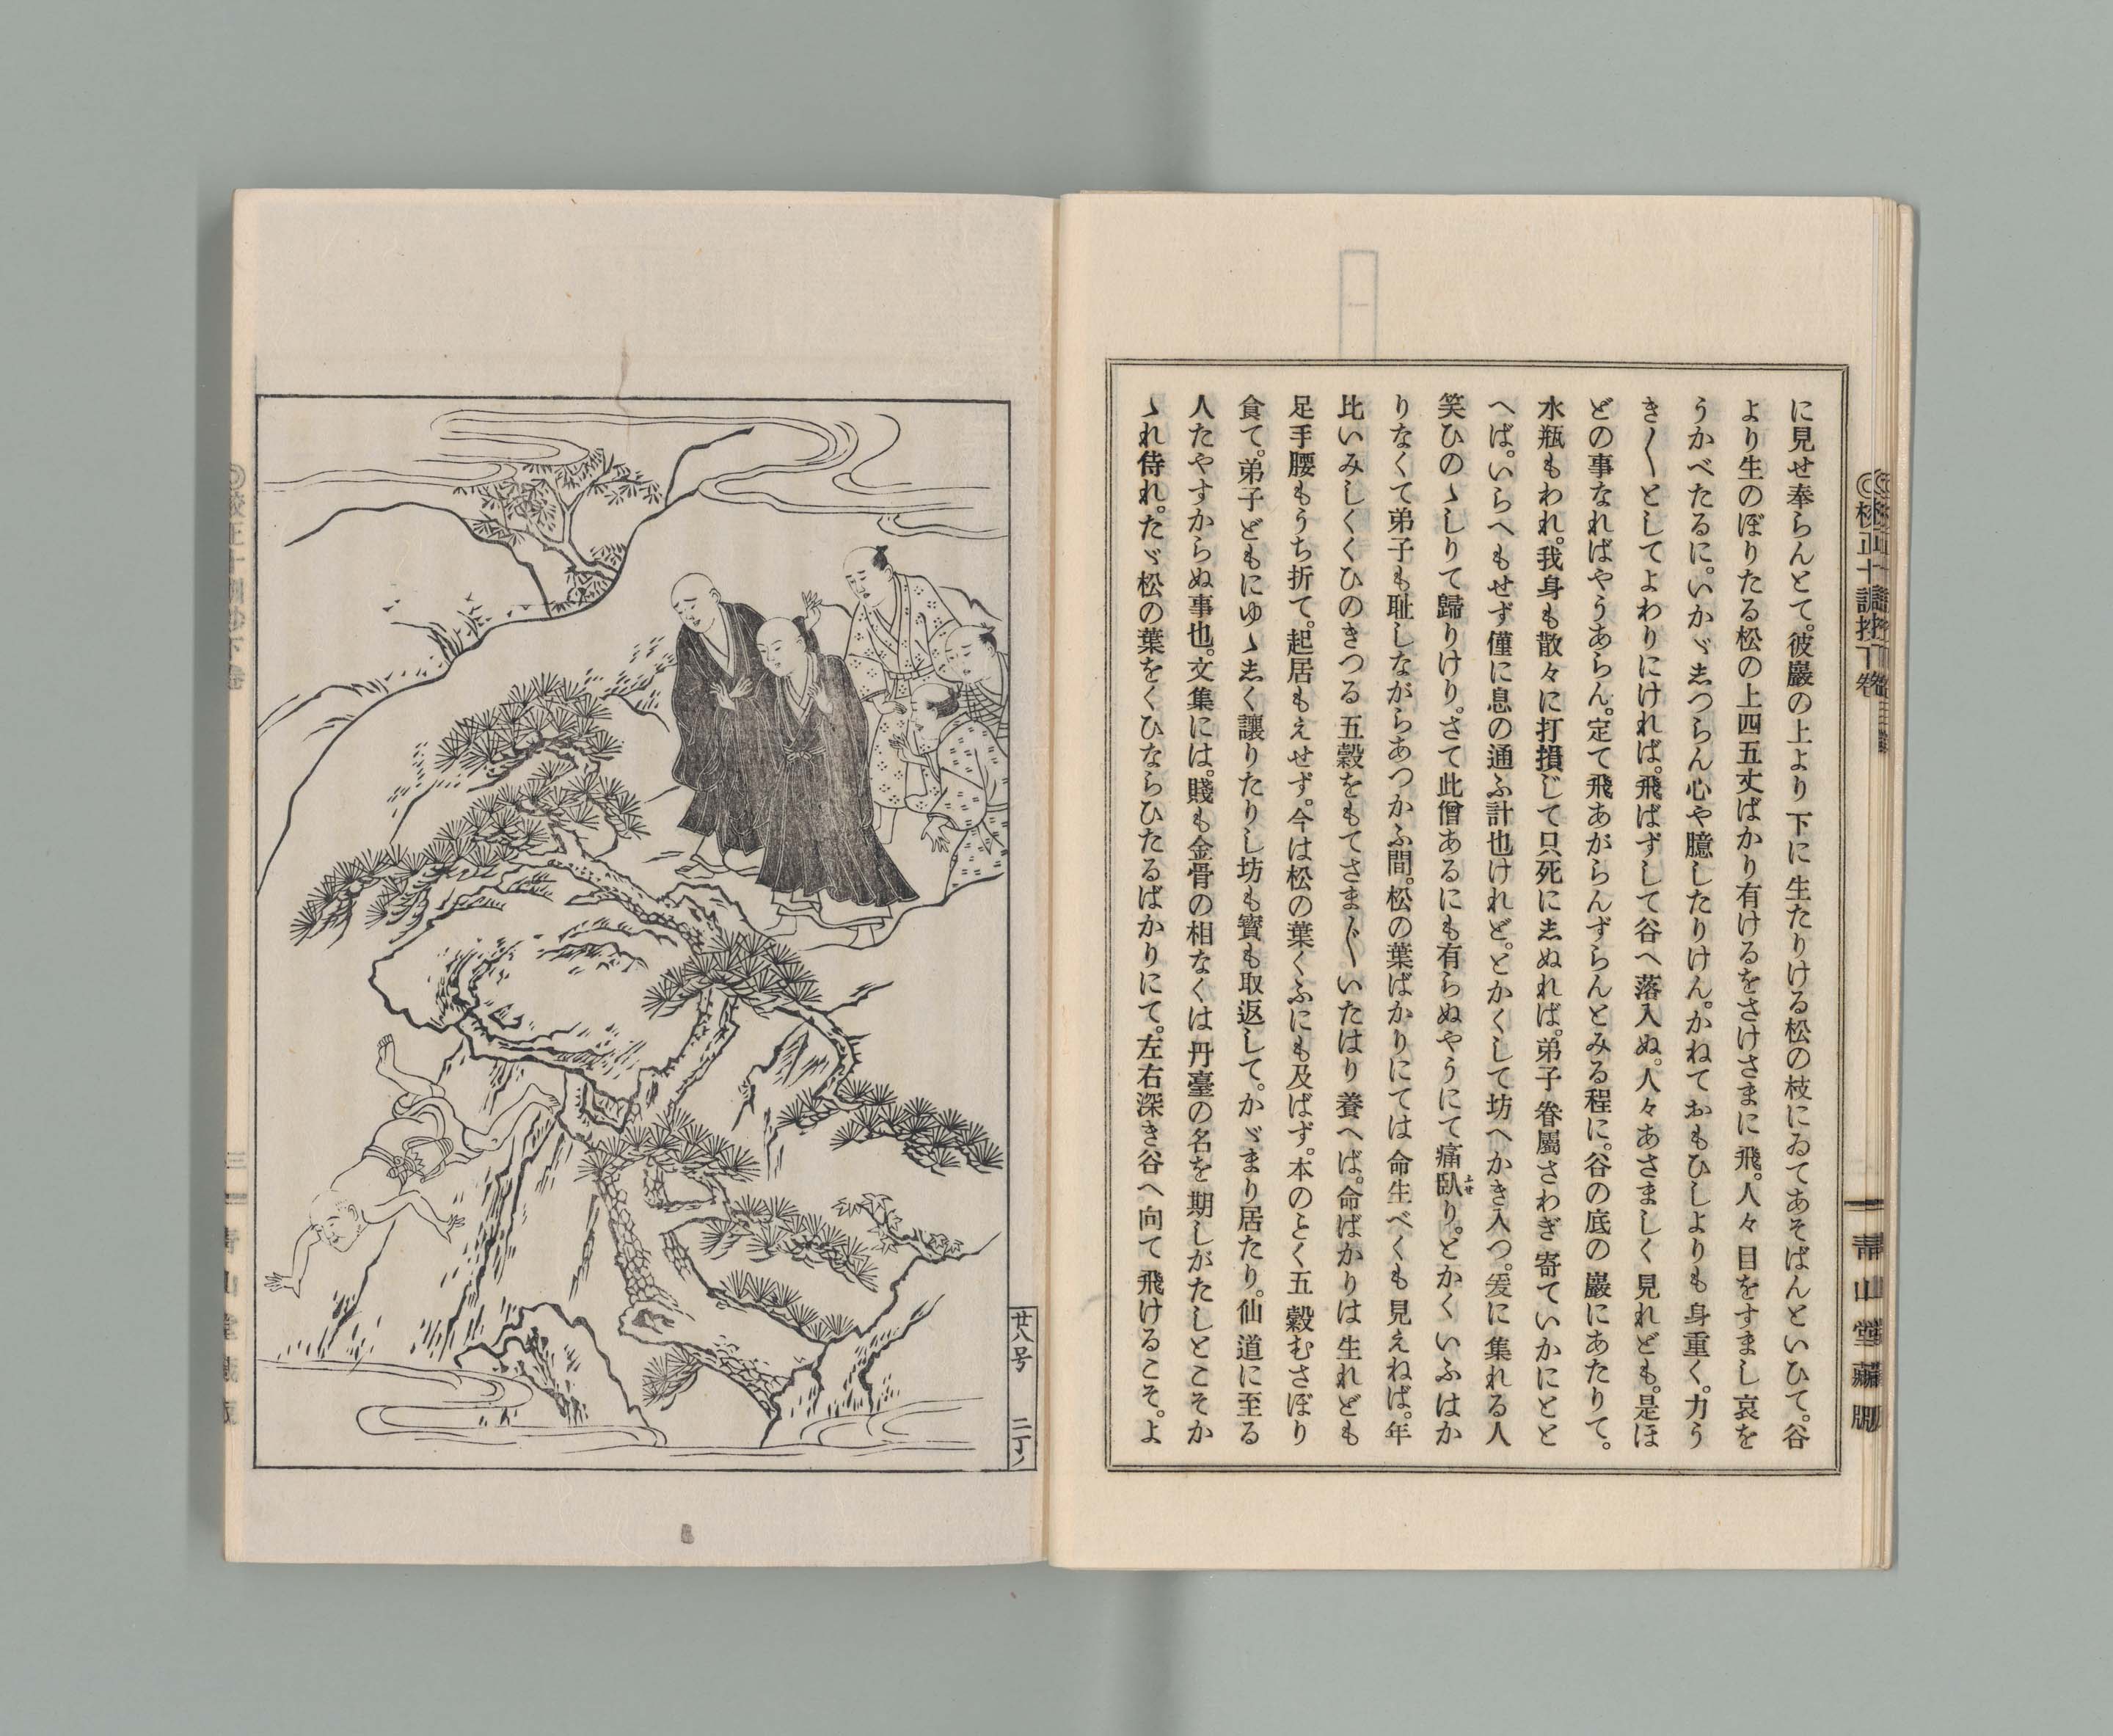 に見せ奉らんとて。彼巖の上より下に生たりける松の枝にゐてあそばんといひて。谷
より生のぼりたる松の上四五丈ばかり有けるをさけさまに飛。人々目をすまし哀を
うかべたるに。いかゞ志つらん心や臆したりけん。かねておもひしよりも身重く。力う
き〳〵としてよわりにければ。飛ばずして谷へ落入ぬ。人々あさましく見れども。是ほ
どの事なればやうあらん。定て飛あがらんずらんとみる程に。谷の底の巖にあたりて。
水瓶もわれ。我身も散々に打損じて只死に志ぬれば。弟子眷屬さわぎ寄ていかにとと
へば。いらへもせず僅に息の通ふ計也けれど。とかくして坊へかき入つ。爰に集れる人
笑ひのゝしりて歸りけり。さて此僧あるにも有らぬやうにて痛臥り。とかくいふはか
りなくて弟子も耻しながらあつかふ間。松の葉ばかりにては命生べくも見えねば。年
比いみしくくひのきつる五穀をもてさま〴〵いたはり養へば。命ばかりは生れども
足手腰もうち折て。起居もえせず。今は松の葉くふにも及ばず。本のとく五穀むさぼり
食て。弟子どもにゆゝ志く讓りたりし坊も寶も取返して。かゞまり居たり。仙道に至る
人たやすからぬ事也。文集には。賤も金骨の相なくは丹臺の名を期しがたしとこそか
ゝれ侍れ。たゞ松の葉をくひならひたるばかりにて。左右深き谷へ向て飛けるこそ。よ
ふせ
◎校正十訓抄下卷
青山堂藏版
廿八号
二丁ノ
◎校正十訓抄下卷
三
青山堂藏版